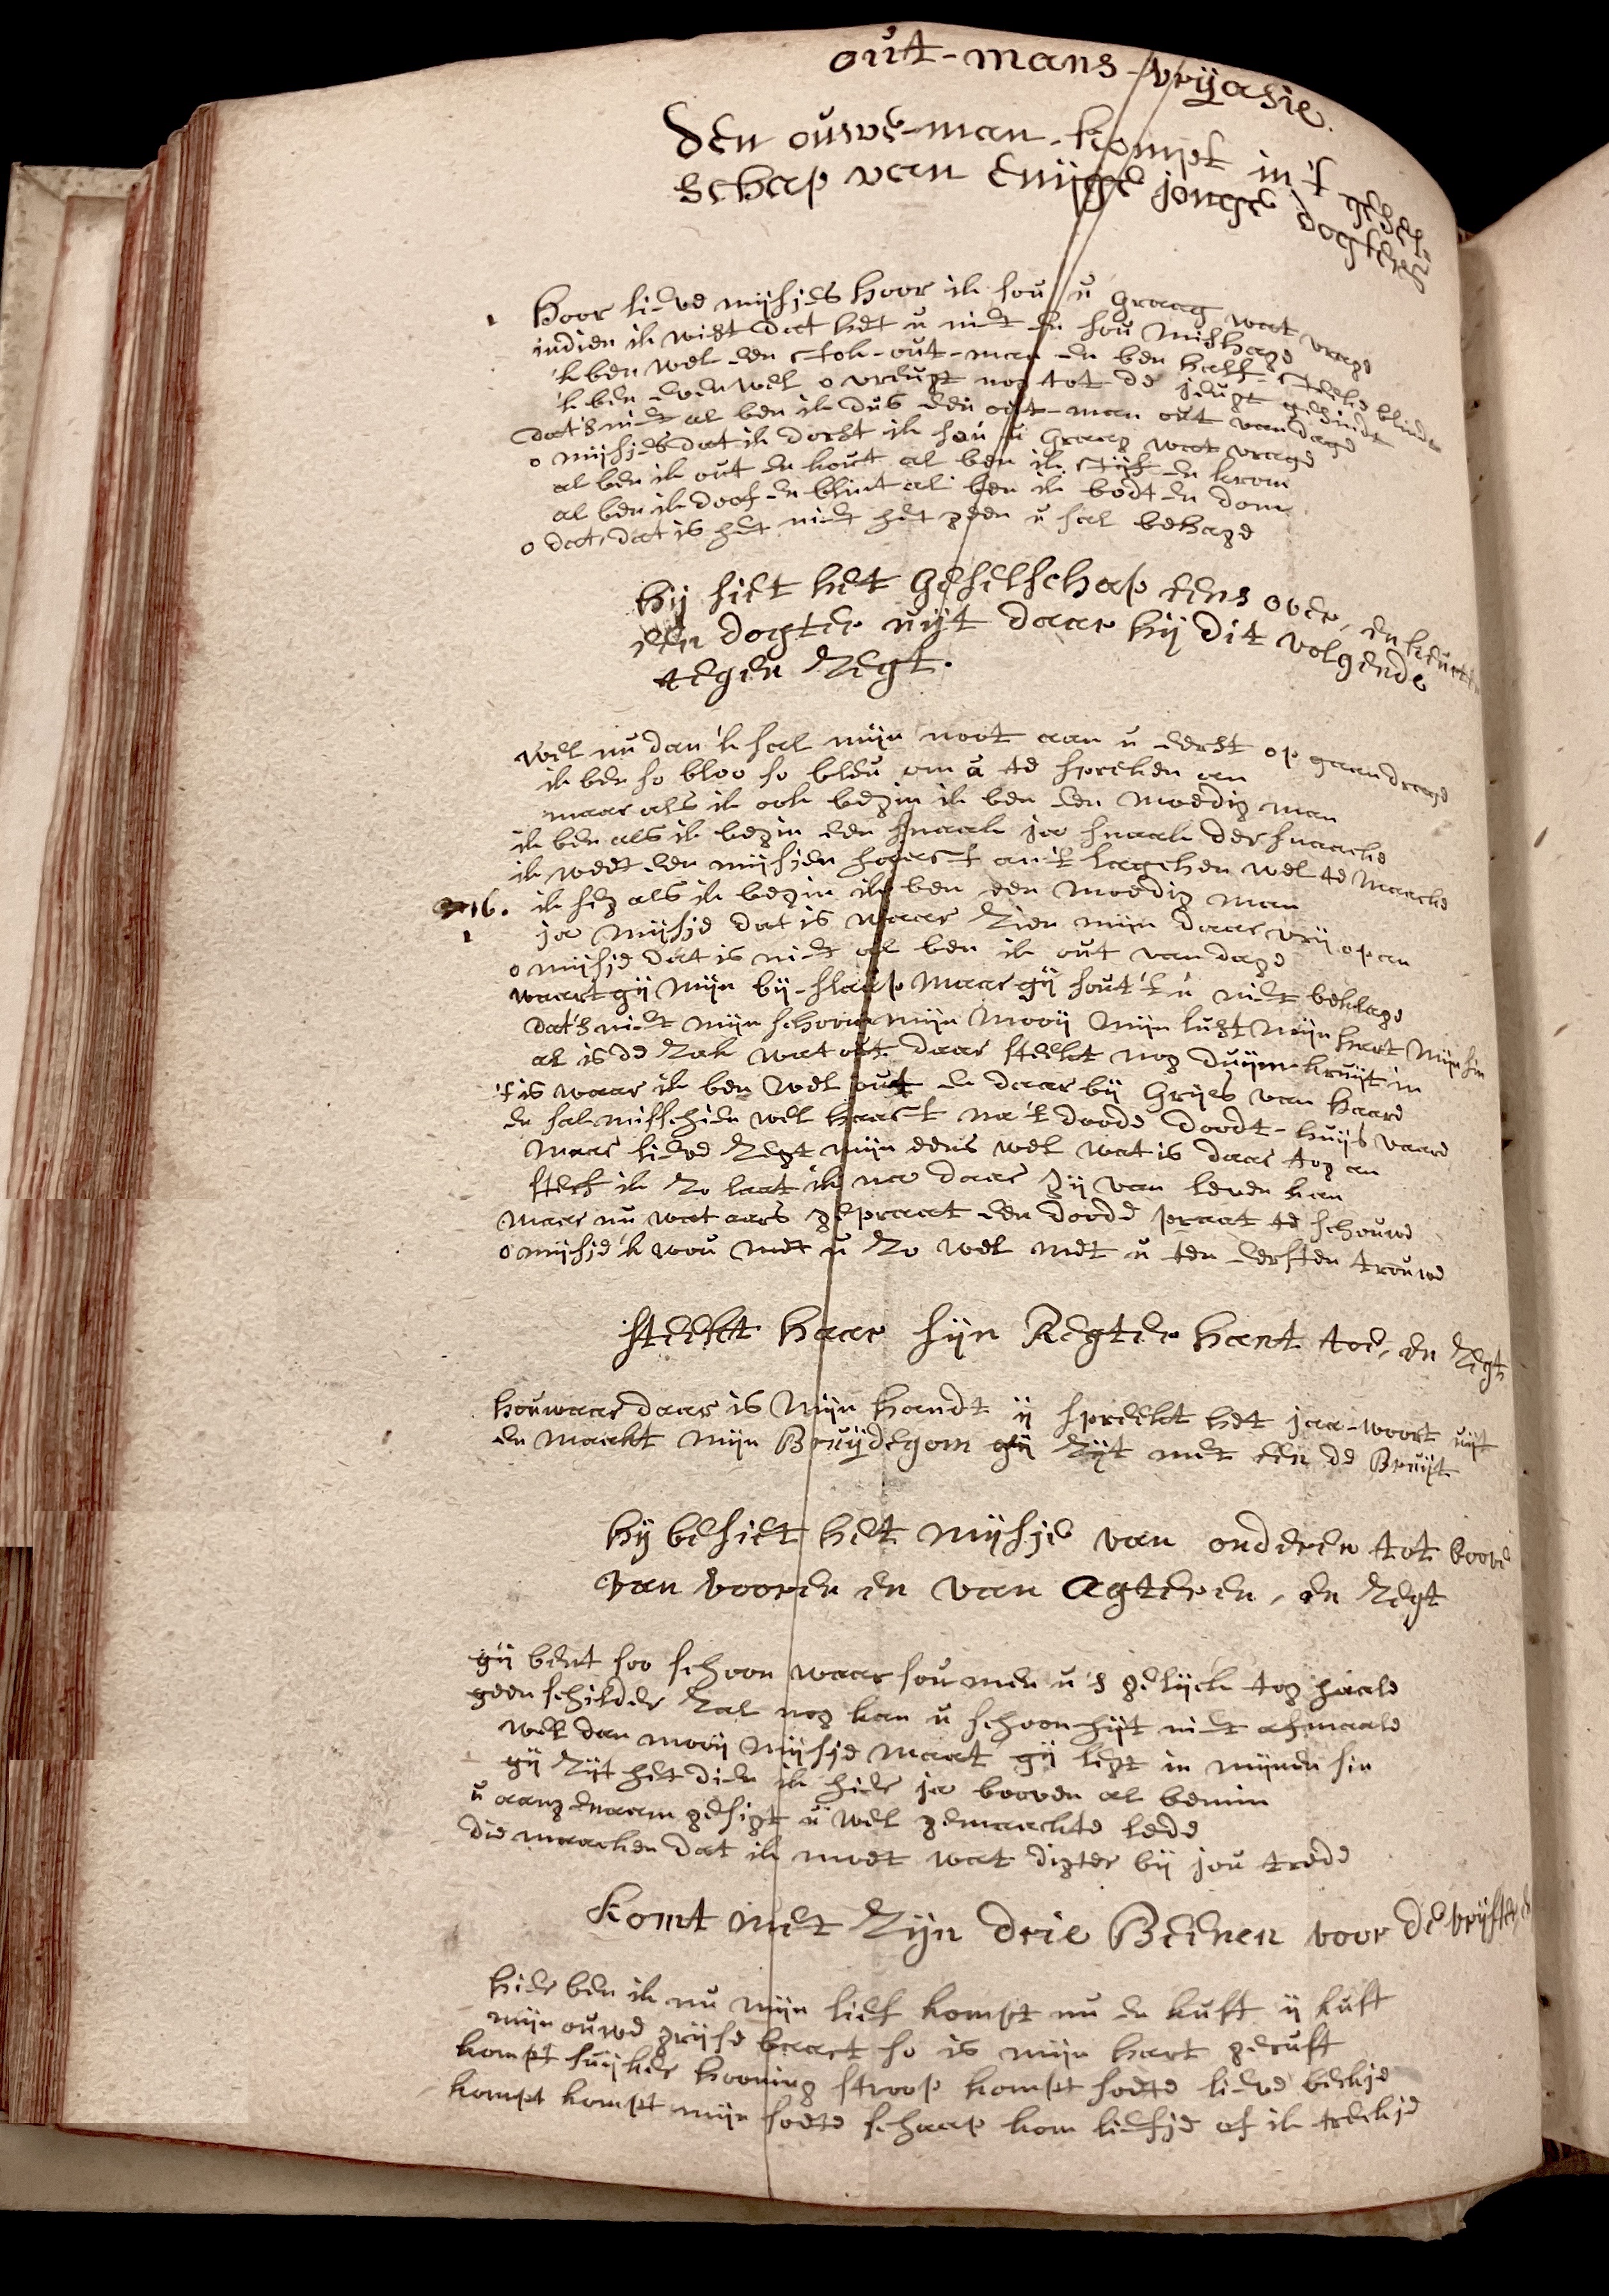 out-mans-vrijasie.
den ouwe-man kompt in't gesel-
schap van enijge jonge dogters
1 hoor lieve mijsjes hoor ik sou u graag wat vrage
indien ik wist dat het u niet en sou mishage
'k ben wel een stok-out-man en ben half steke blindt
'k ben evenwel o vreugt nog tot de jeugt gesindt
dat's niet al ben ik dus een out-man out van dage
o mijsjes dat ik dorst ik sou u graag wat vrage
al ben ik out en kout al ben ik stijf en krom
al ben ik doof en blint al ben ik bot en dom
o dat, dat is het niet het geen u sal behage
hij siet het geselschap eens over, en keurt
een dogter uijt daar hij dit volgende
tegen zegt.
wel nu dan 'k sal mijn noot aan u eerst op gaan drage
ik ben so bloo so bleu om u te spreken an
maar als ik ook begin ik ben een moedig man
ik ben als ik begin een snaak ja snaak der snaacke
ik weet een mijsjen haast an't lagchen wel te maacke
16. ik seg als ik begin ik ben een moedig man
1 ja mijsje dat is waar zien mijn daar vrij op an
o mijsje dat is niet al ben ik out van dage
waart gij mijn bij-slaap maar gij sout 't u niet beklage
dat's niet mijn schoone mijn mooij mijn lust mijn hart mijn sin
al is de zak wat out daar steekt nog duijm-kruijt in
't is waar ik ben wel out en daar bij grijs van haare
en sal misschien wel haast na't doode doodt-huijs vaare
maar lieve zegt mijn eens wel wat is daar tog an
sterf ik zo laat ik na daar gij van leven kan
maar nu wat aars gepraat een doode praat te schouwe
o mijsje 'k wou met u zo wel met u ten eersten trouwe
steekt haar sijn Regter hant toe, en zegt
houwaar daar is mijn handt ij spreekt het jaa-woort uijt
en maakt mijn Bruijdegom gij zijt met een de Bruijt
hij besiet het mijsje van onderen tot boove
van vooren en van agteren, en zegt
gij bent soo schoon waar sou men u's gelijck tog haale
geen schilder zal nog kan u schoonhijt niet afmaale
wel dan mooij mijsje maat gij legt in mijnen sin
gij zijt het dien ik hier ja booven al bemin
u aangenaam gesigt u wel gemaackte lede
die maacken dat ik moet wat digter bij jou trede
komt met zijn drie Beenen voor de vrijster
hier ben ik nu mijn lief kompt nu en kust ij kust
mijn ouwe grijse baart so is mijn hart gerust
kompt suijker hooning stroop kompt soete lieve bekje
kompt kompt mijn soete schaap kom liefje of ik trekje